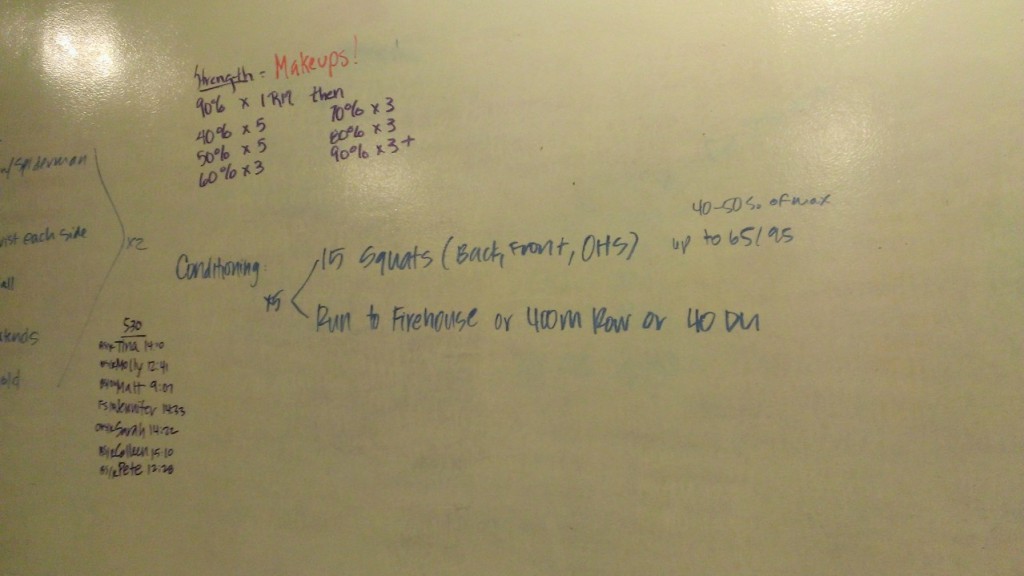 Strength: Makeups!
90% x 1RM then
40% x 5
50% x 5
60% x 3
70% x 3
80% x 3
90% x 3+
w/Spiderman
each side
x2
all
old
Conditioning:
x5
15 Squats (Back, Front, OHS)
40-50% of max
up to 65/95
Run to Firehouse or 400m Row or 40 DU
530
Tina
Molly 12:41
Matt 9:07
Sarah 14:22
Colleen 15:10
Pete 12:28